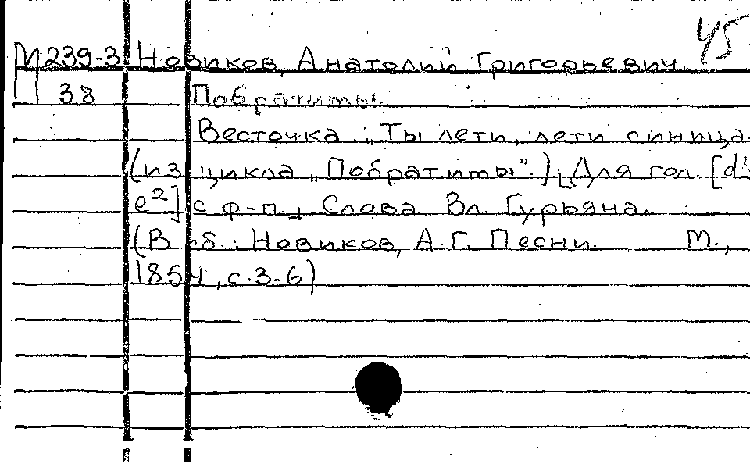 45
М 239-3 Новиков, Анатолий Григорьевич
38 Побратимы.
Весточка „Ты лети, лети синица
(из цикла „Побратимы".) Для гол. [d¹
e²] с ф-п. Слова Вл. Гурьяна.
(В сб.: Новиков, А.Г. Песни. М.,
1854, с.3-6)